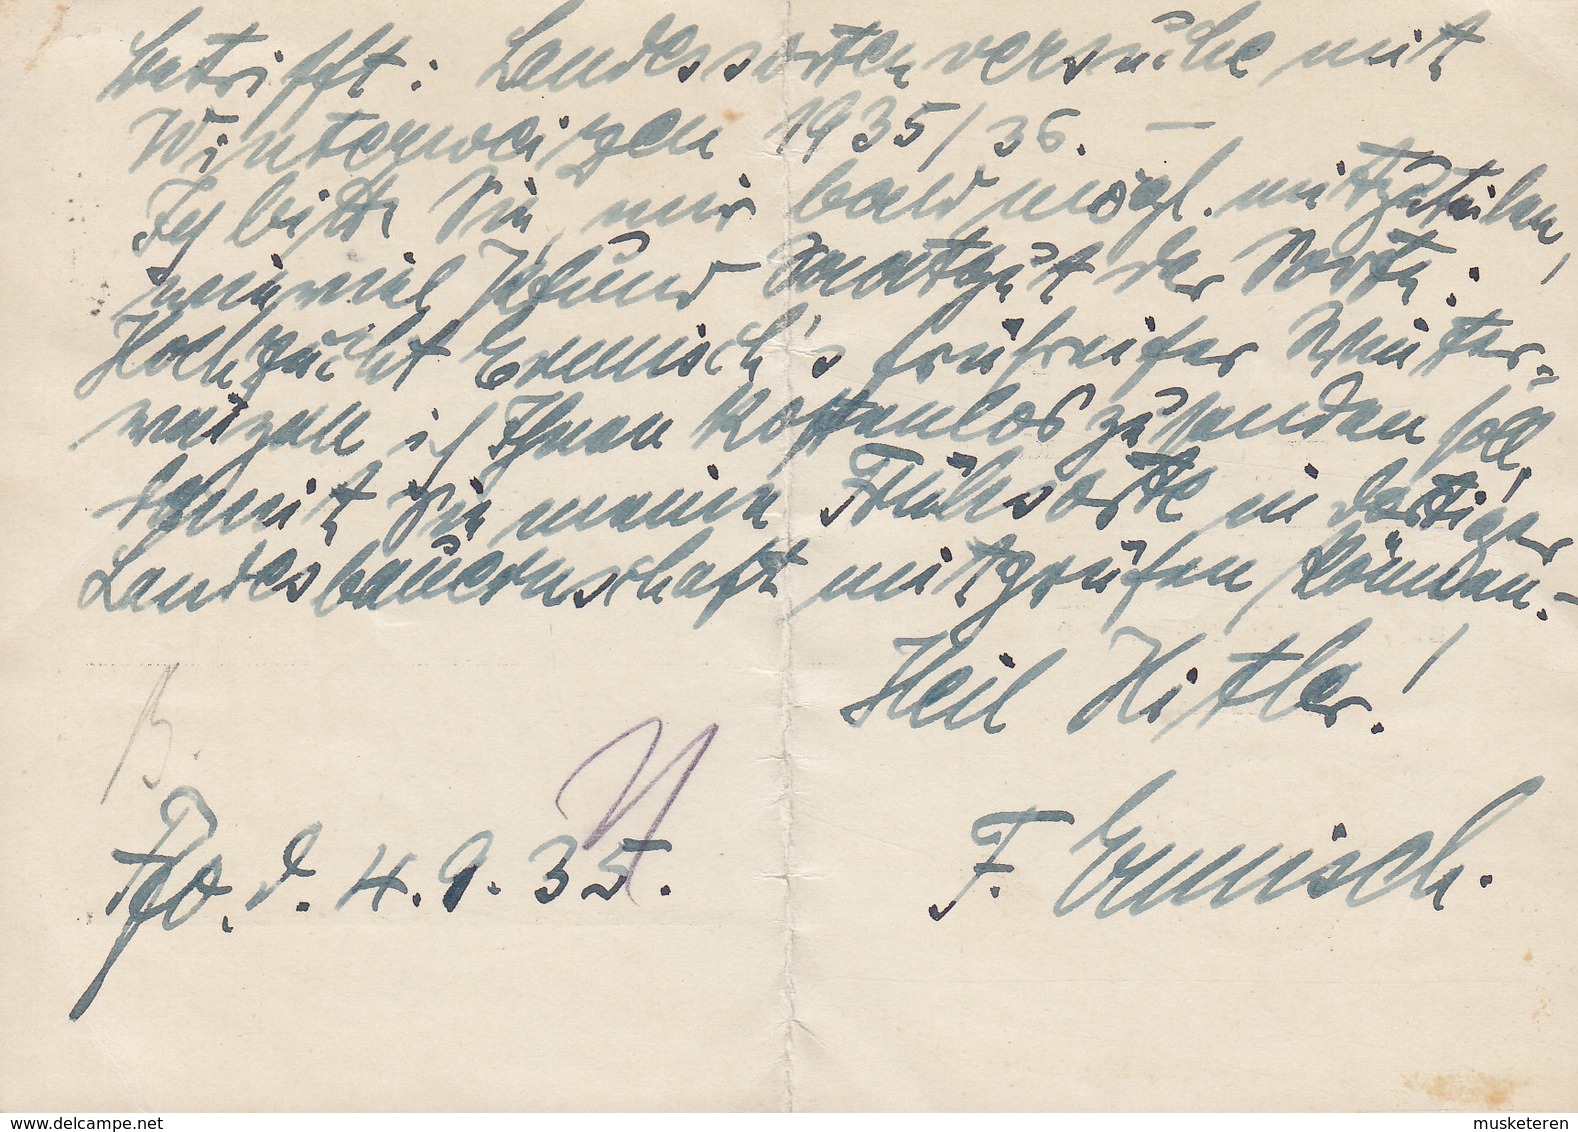 betrifft: Landessortenversuche mit
Winterweizen 1935/36. —
Ich bitte Sie, mir bald mögl. mitzuteilen,
wieviel Pfund Saatgut der Sorte:
Hochzucht Ermisch's frühreifer Winter-
weizen ich Ihnen kostenlos zusenden soll,
damit Sie meine Frühsorte in dortiger
Landesbauernschaft mitprüfen können. –
Heil Hitler!
B.
d. 4.9.35.
F. Ermisch.
www.delcampe.net
musketeren